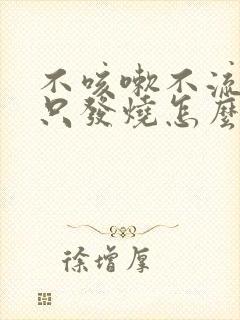 不咳嗽不流
只發燒怎麼
徐增厚